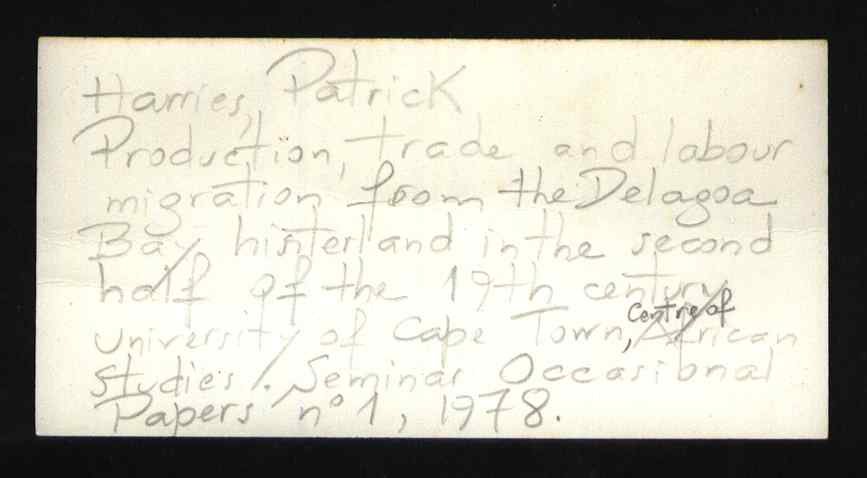 Harries, Patrick
Production, trade and labour
migration from the Delagoa
Bay hinterland in the second
half of the 19th century
University of Cape Town, Centre of African
Studies/. Seminar Occasional
Papers nº 1, 1978.